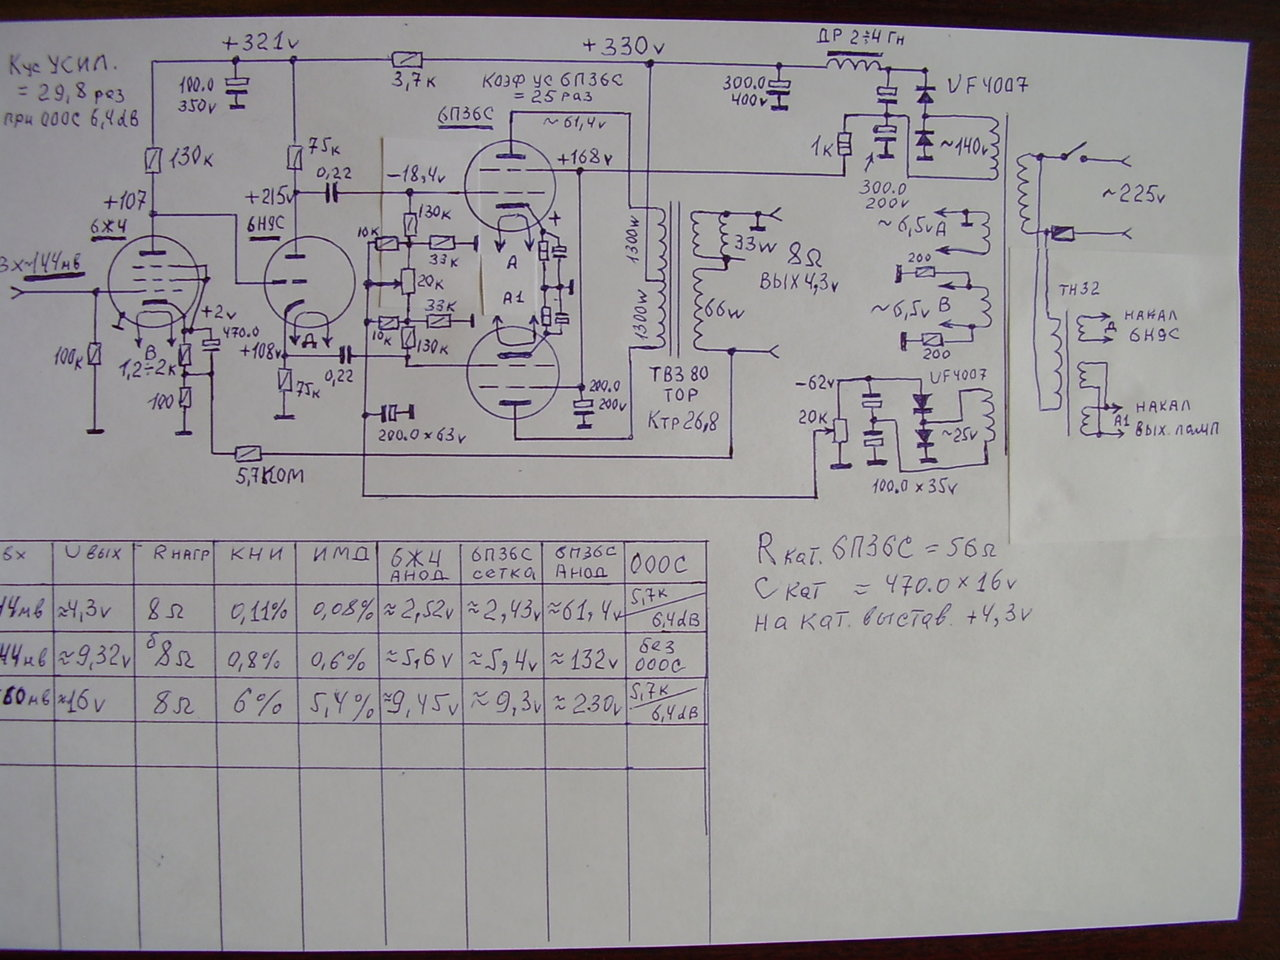 Кус УСИЛ.
= 29,8 раз
при ОООС 6,4dB
+321v
100.0
350v
3,7к
КОЭФ УС 6П36С
= 25 РАЗ
~61,4v
+330v
ДР 2÷4 Гн
300.0
400v
UF4007
1к
~140v
300.0
200v
~225v
130к
75к
6П36С
+168v
0,22
-18,4v
+107
+215v
6Ж4
6Н9С
Вх~144мв
130к
10к
33к
20к
10к
33к
130к
А
А1
+
1300w
1300w
33w
8Ω
ВЫХ 4,3v
66w
~6,5v А
200
~6,5v В
200
ТН32
НАКАЛ
6Н9С
А
НАКАЛ
ВЫХ. ЛАМП
А1
+2v
470.0
В
А
100к
1,2÷2к
100
+108v
0,22
75к
200.0×63v
5,7КОМ
200.0
200v
ТВЗ 80
ТОР
Ктр 26,8
-62v
20к
UF4007
~25v
100.0×35v
вх U ВЫХ R НАГР КНИ ИМД 6Ж4 АНОД 6П36С сетка 6П36С АНОД ОООС
44мв ≈4,3v 8Ω 0,11% 0,08% ≈2,52v ≈2,43v ≈61,4v 5,7к/6,4dB
44мв ≈9,32v 8Ω 0,8% 0,6% ≈5,6v ≈5,4v ≈132v без ОООС
60мв ≈16v 8Ω 6% 5,4% ≈9,45v ≈9,3v ≈230v 5,7к/6,4dB
R кат. 6П36С = 56Ω
С кат = 470.0×16v
на кат. выстав. +4,3v